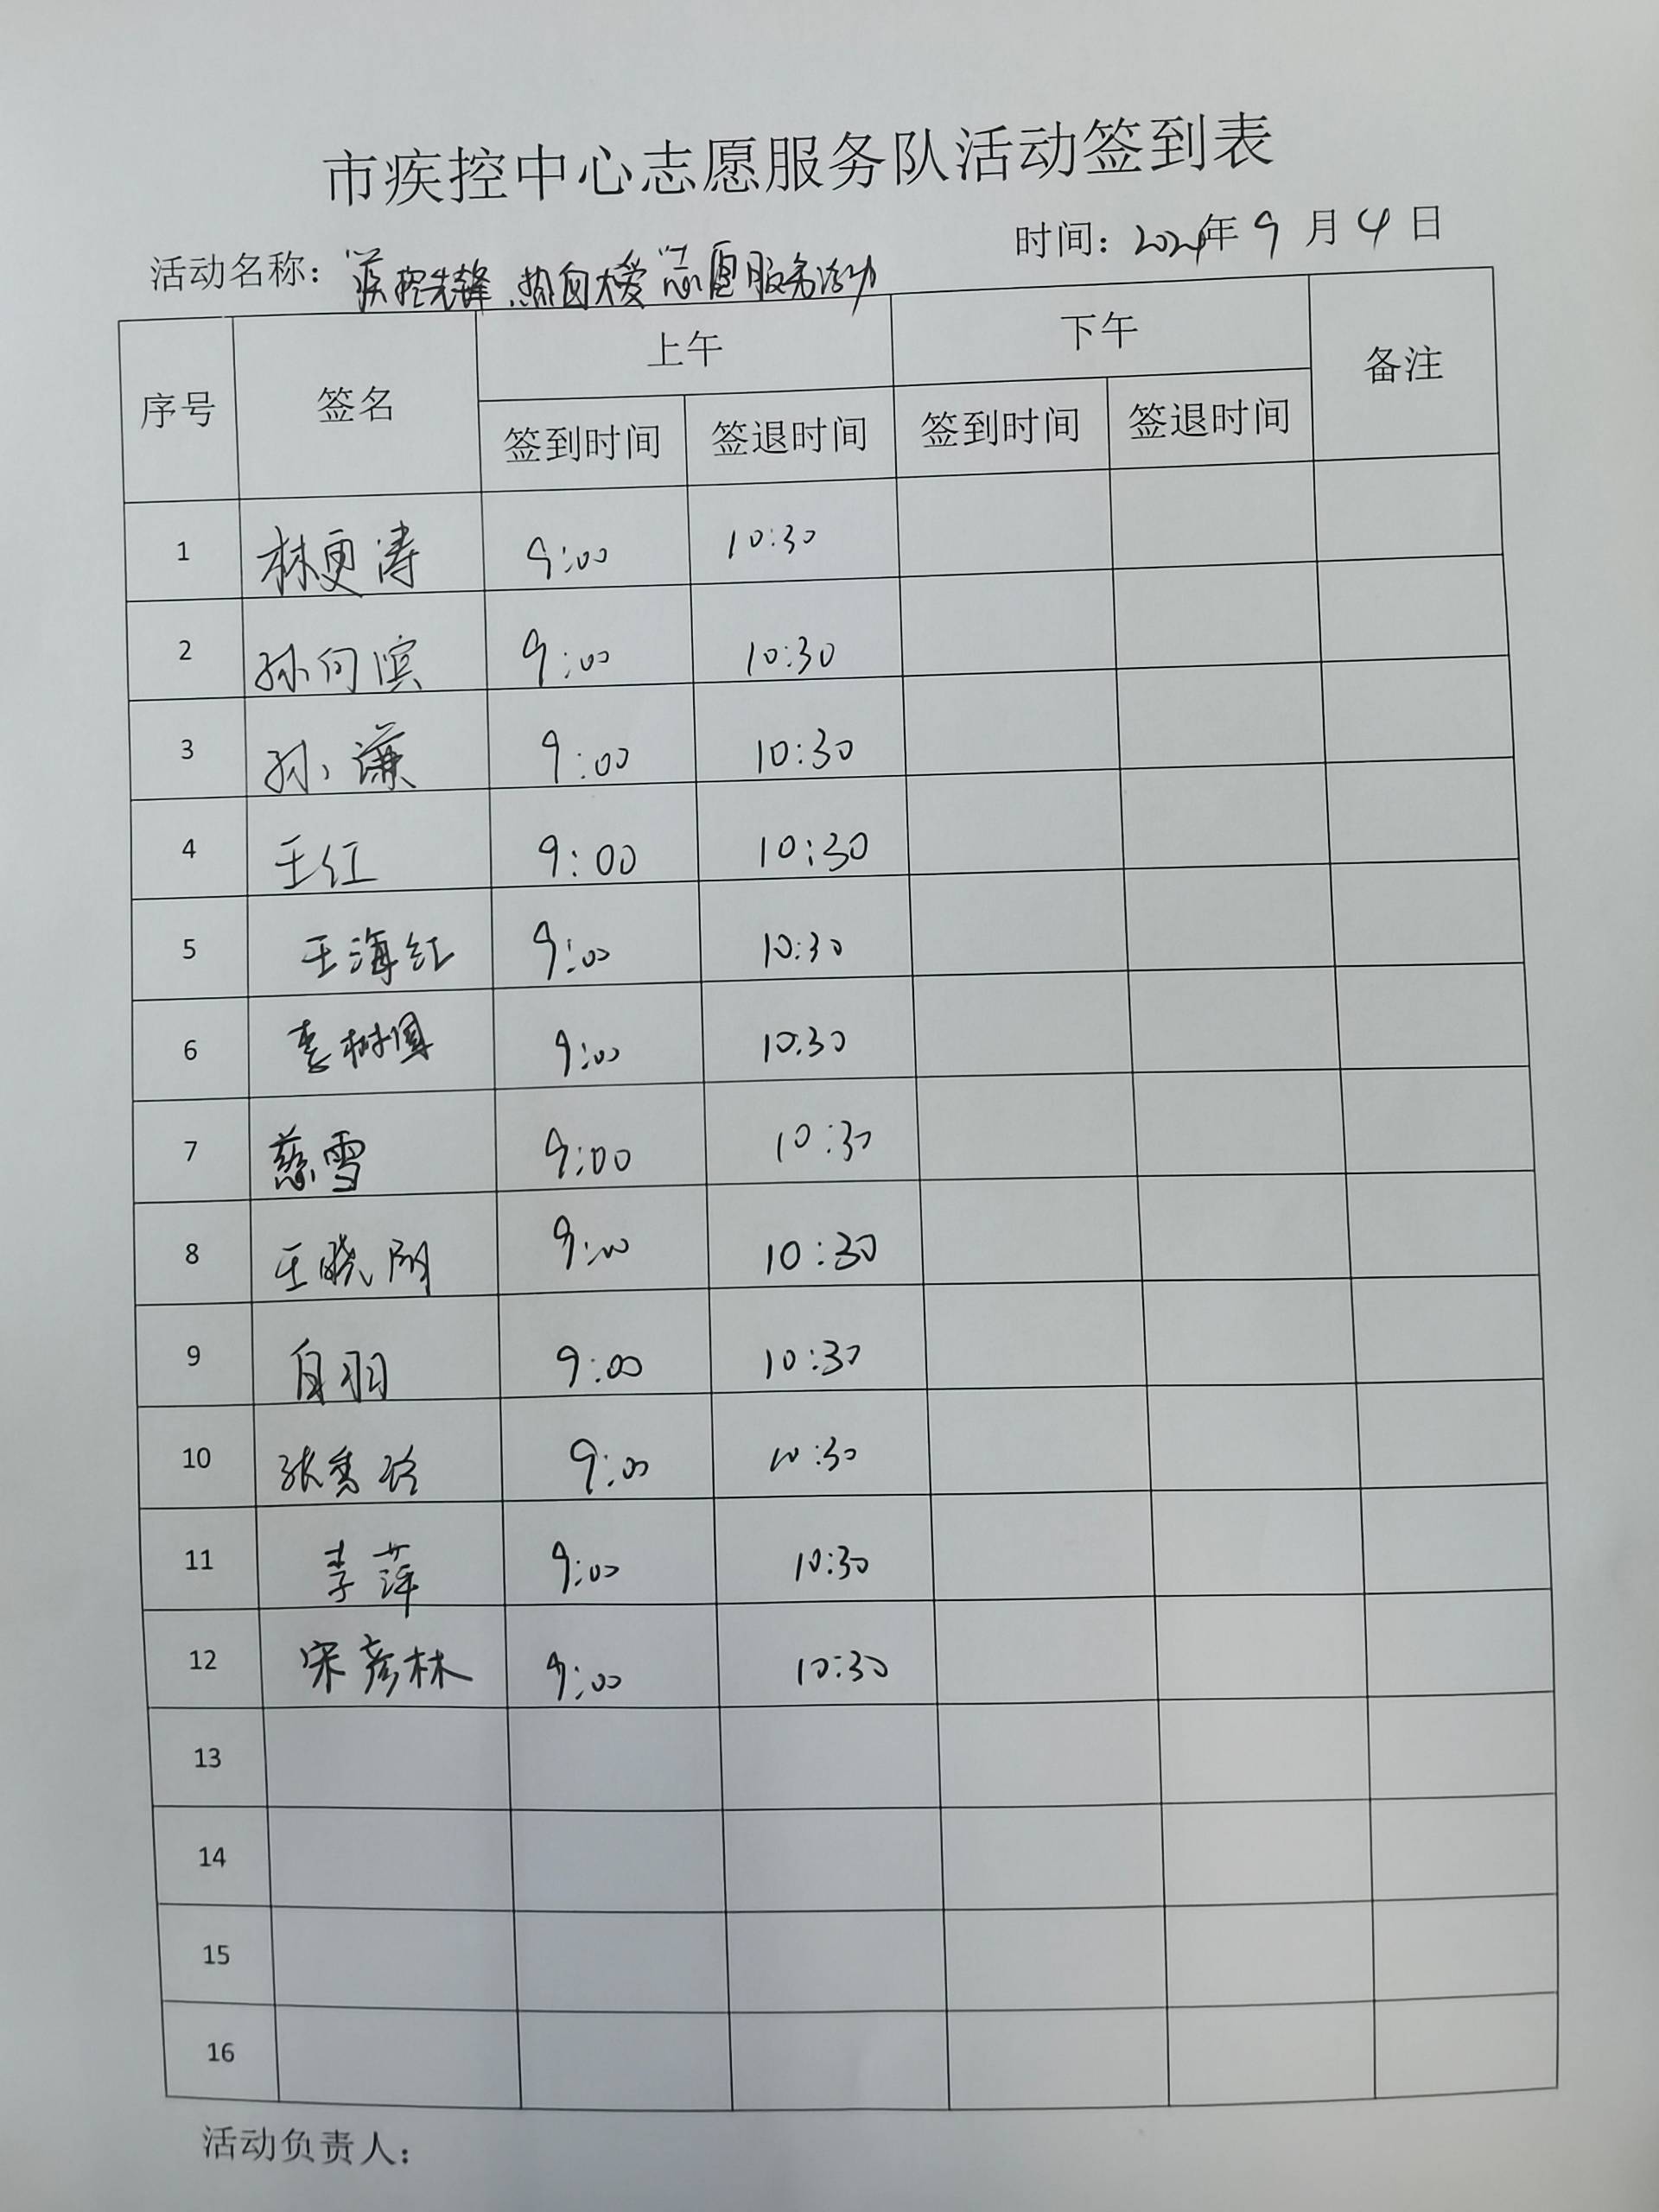 市疾控中心志愿服务队活动签到表
时间：2024年9月4日
活动名称："疾控先锋.热血大爱"志愿服务活动
上午 下午
序号 签名 备注
签到时间 签退时间 签到时间 签退时间
1 林更涛 9:00 10:30
2 孙向滨 9:00 10:30
3 孙谦 9:00 10:30
4 王红 9:00 10:30
5 王海红 9:00 10:30
6 李树国 9:00 10:30
7 慈雪 9:00 10:30
8 王晓 9:00 10:30
9 白羽 9:00 10:30
10 张秀玲 9:00 10:30
11 李萍 9:00 10:30
12 宋彦林 9:00 10:30
13
14
15
16
活动负责人：